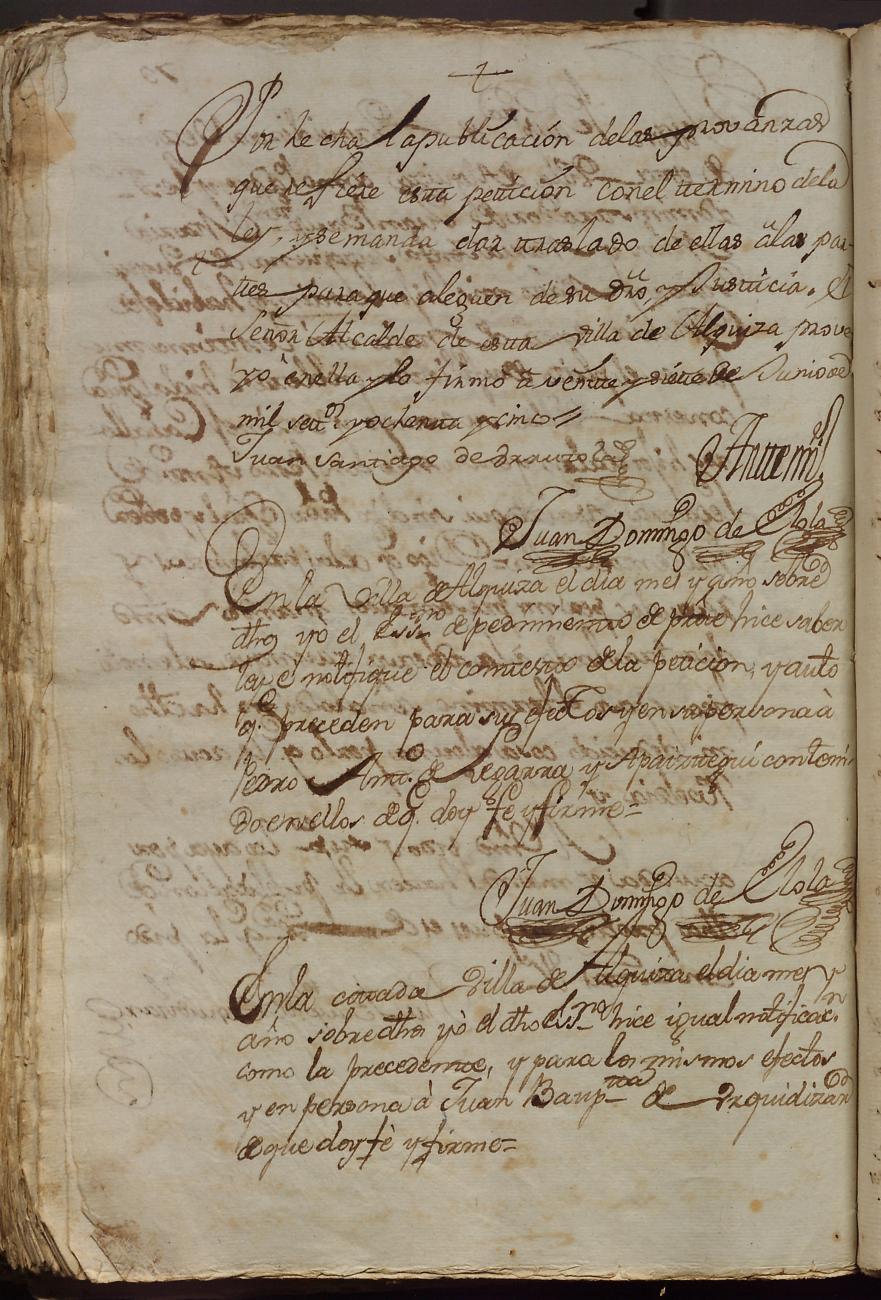 Por hecha la publicación delas provanzas
que refiere esta petición con el termino dela
ley, y se manda dar traslado de ellas à las par-
tes para que aleguen de su dro, y Justicia. El
Señor Alcalde de esta Villa de Alquiza prove
yò en ella y lo firmò à veinte y siete de Junio de
mil setos y ochenta y cinco =
Juan Santiago de Yrrutola
Ante mi
Juan Domingo de Elola
En la Villa de Alquiza el dia mes y año sobre
dho yò el Essno de pedimiento de parte hice saber
ley è notifique el contexto de la petición, y auto
q. preceden para sus efectos y en su persona à
Pedro Anto. de Legarra y Apaiztegui conteni-
do en ellos de q. doy fè y firme =
Juan Domingo de Elola
En la citada Villa de Alquiza el dia mes y
año sobre dho yò el dho Essno hice igual notificacn
como la precedente, y para los mismos efectos
y en persona à Juan Bapta de Yrquidizar
de que doy fè y firme =